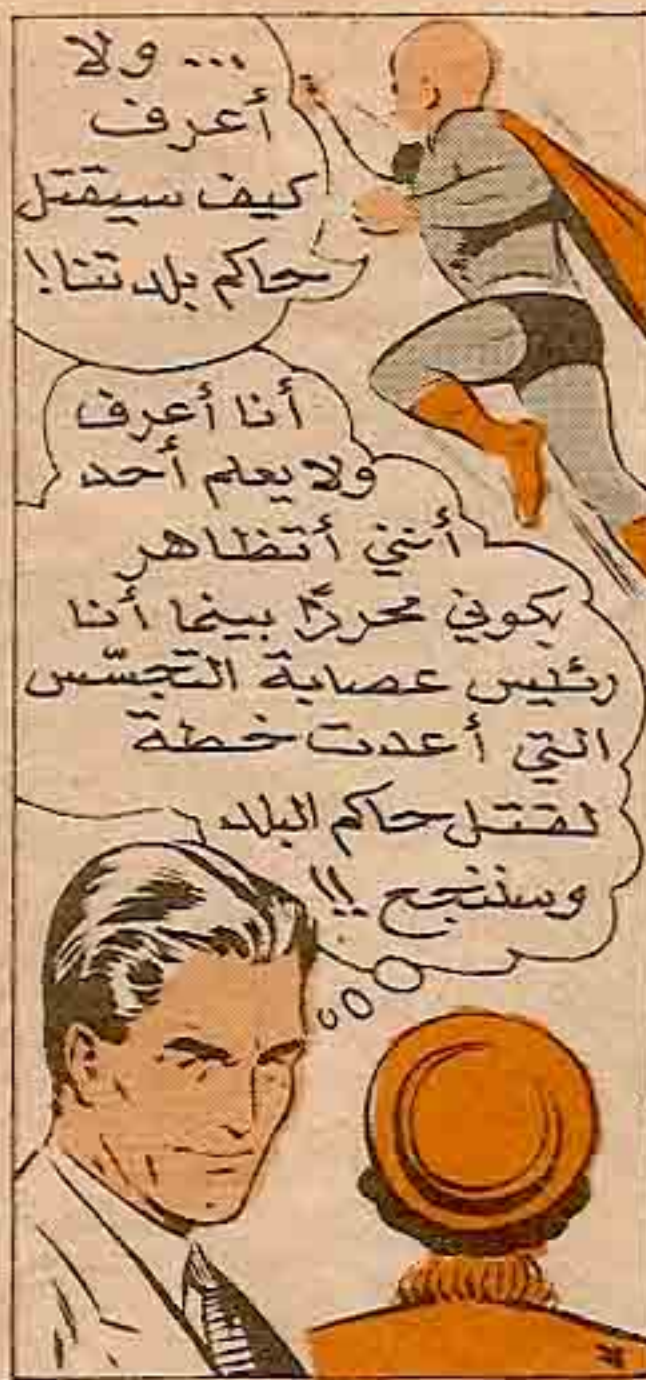 ... ولا
أعرف
كيف سيقتل
حاكم بلدتنا!
أنا أعرف
ولا يعلم أحد
أنني أتظاهر
بكوني محررًا بينما أنا
رئيس عصابة التجسّس
التي أعدت خطة
لقتل حاكم البلد
وسننجح !!